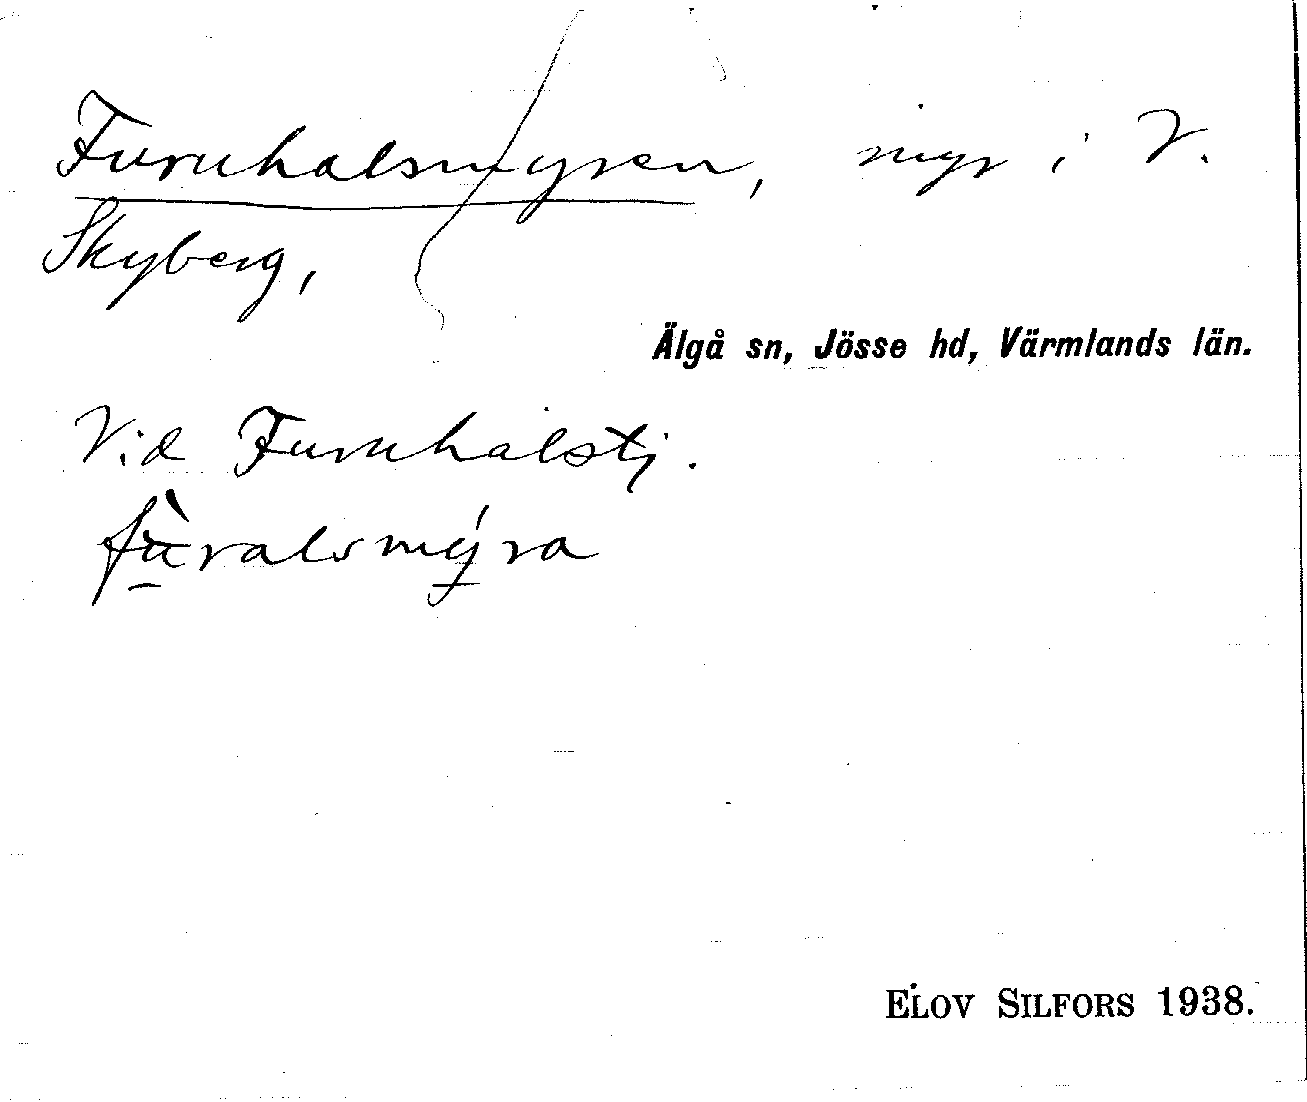 Furuhalsmyren, myr i V.
Skyberg,
Älgå sn, Jösse hd, Värmlands län.
Vid Furuhalstj.
fùralsmýra
ELOV SILFORS 1938.